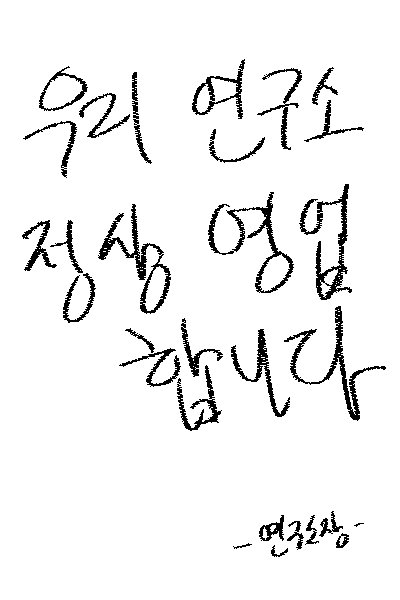 우리 연구소
정상 영업
합니다
-연구소장-